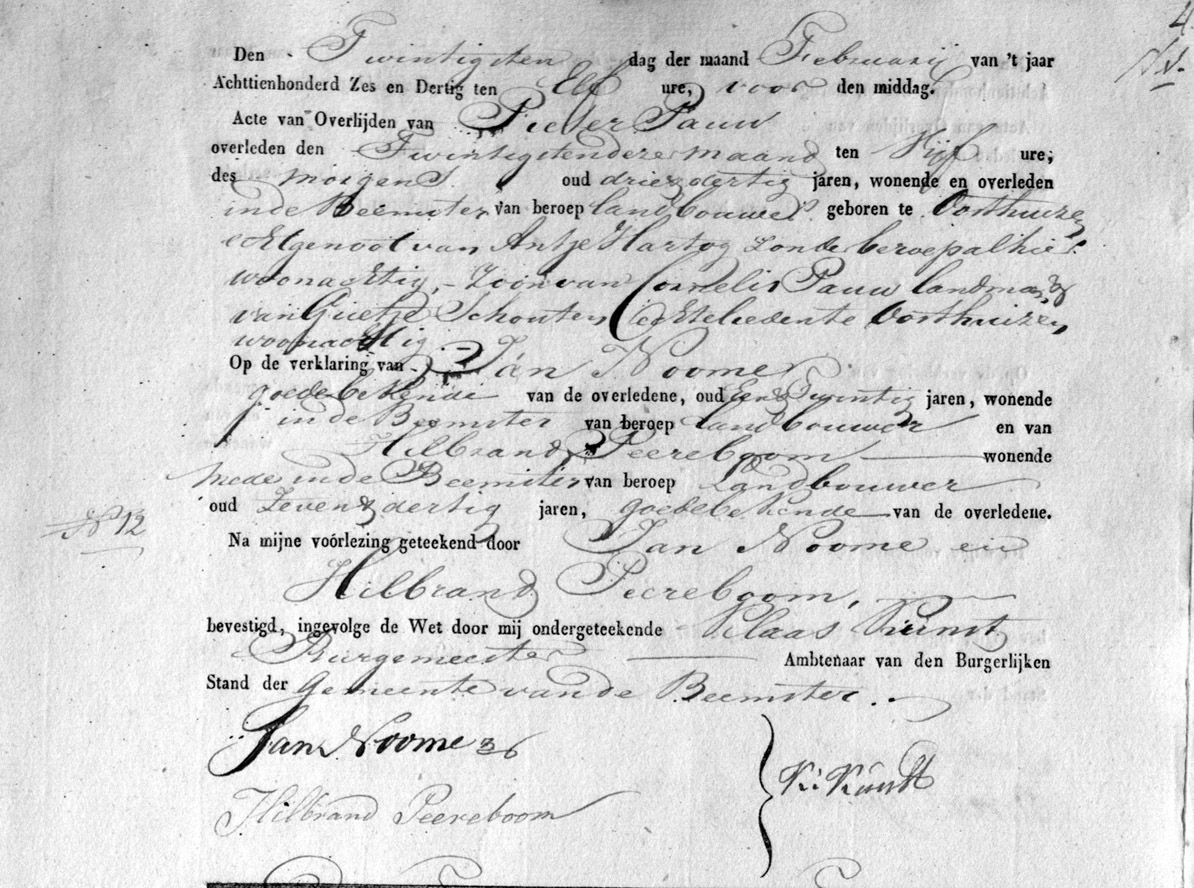 4
Den Twintigsten dag der maand February van 't jaar
Achttienhonderd Zes en Dertig ten Elf ure, voor den middag.
Acte van Overlijden van Pieter Pauw
overleden den Twintigsten dezer maand ten Vijf ure;
des morgens. oud drie & dertig jaren, wonende en overleden
in de Beemster, van beroep landbouwer geboren te Oosthuizen
echtgenoot van Antje Hartog zonder beroep alhier
woonachtig, - Zoon van Cornelis Pauw landman, &
van Guetje Schouten, (echtelieden te Oosthuizen
woonachtig. -
Op de verklaring van Jan Noome
goede bekende van de overledene, oud Een & Twintig jaren, wonende
in de Beemster van beroep Landbouwer en van
Hilbrand Peereboom wonende
mede in de Beemster van beroep Landbouwer
oud Zeven & dertig jaren, goede bekende van de overledene.
N 12
Na mijne voórlezing geteekend door Jan Noome en
Hilbrand Peereboom,
bevestigd, ingevolge de Wet door mij ondergeteekende Klaas Kunst
Burgemeester Ambtenaar van den Burgerlijken
Stand der Gemeente van de Beemster.
Jan Noome
Hilbrand Peereboom
K: Kunst